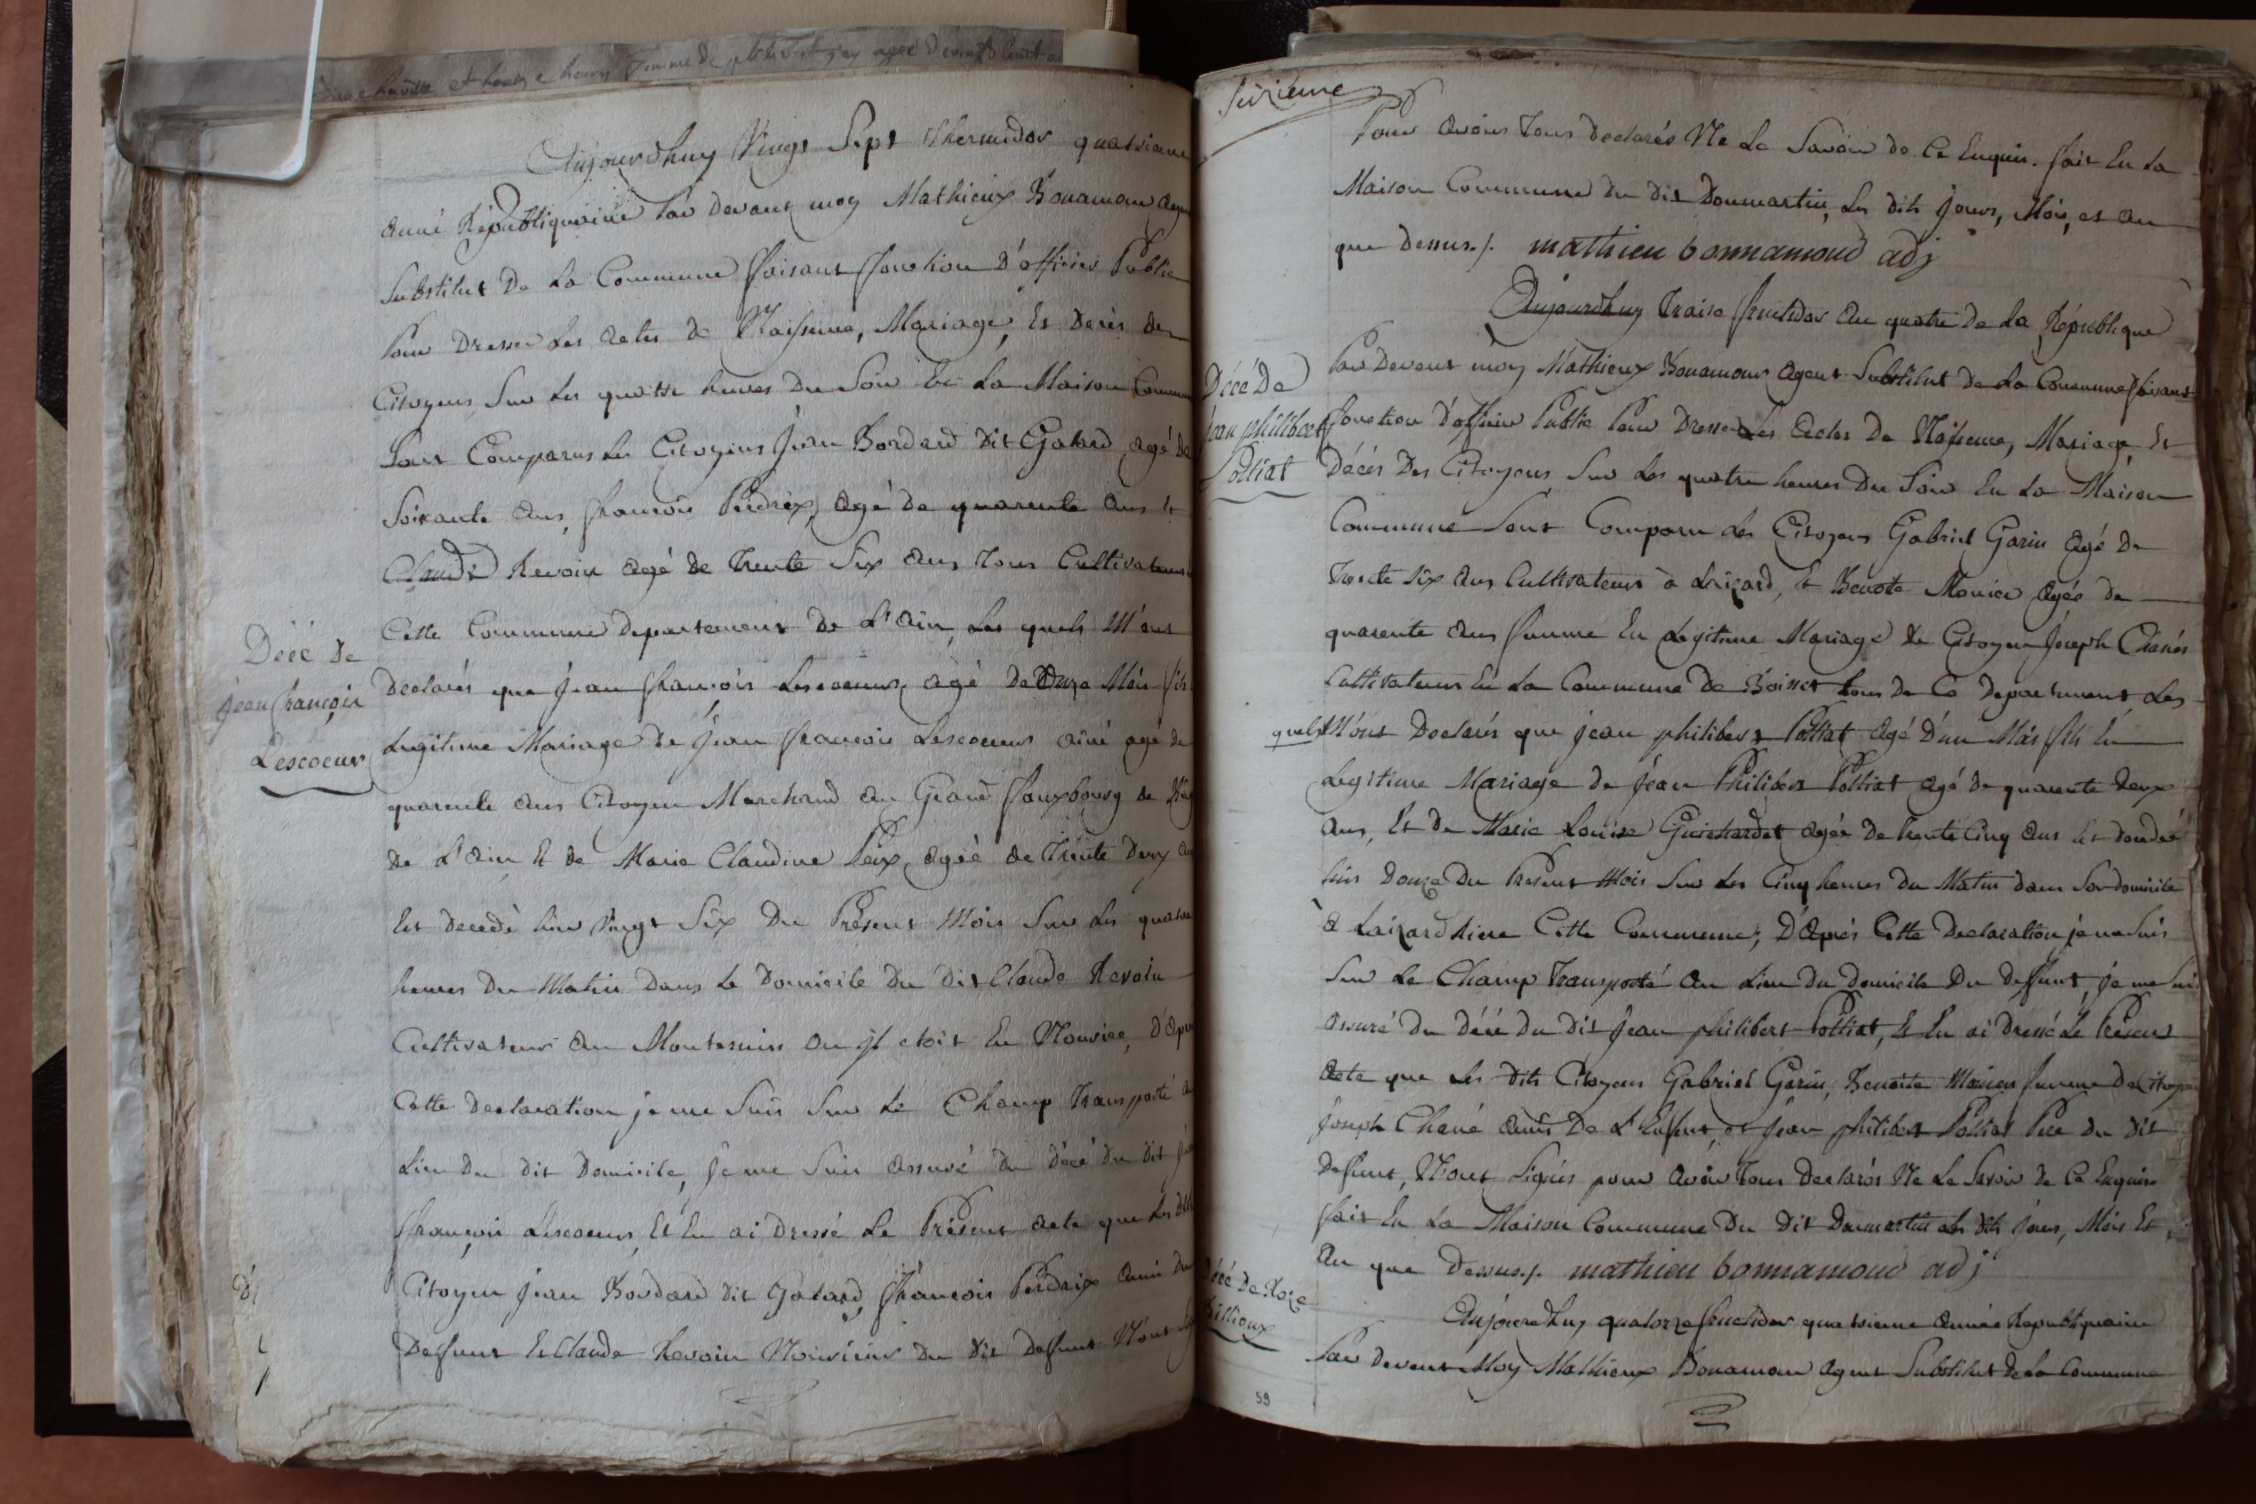 Aujourdhuy Vingt Sept thermidor quatrieme
année Républiquaine par devant moy Mathieux Bonamour agent
Substitut De La Commune faisant fonction D'officier Public
Pour Dresser Les actes de Naissence, Mariage, Et Décès des
Citoyens, Sur Les quattre heures Du Soir En La Maison Commune
Sont Comparus Les Citoyens Jean Bordard Dit Galard, agé de
Soixante ans, François Perdrix, agé de quarente ans Et
Claude Revoin agé de Trente Six ans Tous Cultivateurs
Cette Commune departement de L'ain, Les quels M'ont
Décé de
Jean François
Lescoeur
Declarés que Jean François Lescoeur, agé De Onze Mois fils
Legitime Mariage de Jean François Lescoeur ainé agé de
quarente ans Citoyen Marchand au Grand fauxbourg de
de L'ain Et de Marie Claudine Peix, agée de Trente Deux ans
Est Decedé hier Vingt Six Du Présent Mois Sur Les quatre
heures Du Matin Dans Le Domicile Du Dit Claude Revoin
Cultivateur au Montesuin ou il etoit En Nourice, D'après
Cette Declaration je me Suis Sur Le Champ Transporté au
Lieu Du dit Domicile, je me Suis assuré Du Décé du dit Jean
François Lescoeur, Et En ai Dressé Le Présent acte que Les dits
Citoyen Jean Bordard Dit Galard, François Perdrix ami Du
Deffunt Et Claude Revoin Nouricier Du Dit Deffunt N'ont
Seizieme
Pour avoir Tous Declarés Ne Le Savoir de Ce Enquis. fait En La
Maison Commune Du Dit Donmartin, Les Dits Jours, Mois, et an
que Dessus./. mathieu bonnamoud adj
Aujourdhuy Traise fructidor an quatre De La République
Décé De
Jean philibert
Polliat
Par Devent moy Mathieux Bonamour agent Substitut De La Commune faisant
fonction D'officier Public Pour Dresser Les Actes De Naissence, Mariage, Et
Décés Des Citoyens Sur Les quatre heures Du Soir En La Maison
Commune Sont Comparu Les Citoyens Gabriel Garin agé De
Trente Six ans Cultivateur à Lézard, Et Benoite Monier agée De
quarente ans femme En Legitime Mariage De Citoyen Joseph Chané
Cultivateur En La Commune De Boisset tous De Ce departement, Les
quels M'ont Declarés que Jean philibert Polliat agé D'un Mois fils En
Legitime Mariage de Jean Philibert Polliat agé de quarente Deux
ans, Et De Marie Louise Guichardet agée De Trente Cinq ans Est Decedé
hier Douze Du Présent Mois Sur Les Cinq heures Du Matin dans Son domicile
à Laizardhiere Cette Commune; D'après Cette Declaration je me Suis
Sur Le Champ Transporté au Lieu Du Domicile Du Deffunt, je me Suis
assuré Du Décé du dit Jean philibert Polliat, Et En ai Dressé Le Présent
acte que Les dits Citoyens Gabriel Garin, Benoite Monier femme De Citoyen
Joseph Chané amis De L'Enfent, et Jean philibert Polliat Pere Du Dit
Deffunt, N'ont Signés pour avoir Tous Declarés Ne Le Savoir De Ce Enquis
fait En La Maison Commune Du Dit Donmartin Les Dits Jours, Mois Et
An que Dessus./. mathieu bonnamoud adj
Décé De Roze
Aujourdhuy quatorze fructidor quatrieme année Republiquaine
Par devent Moy Mathieux Bonamour agent Substitut De La Commune
59